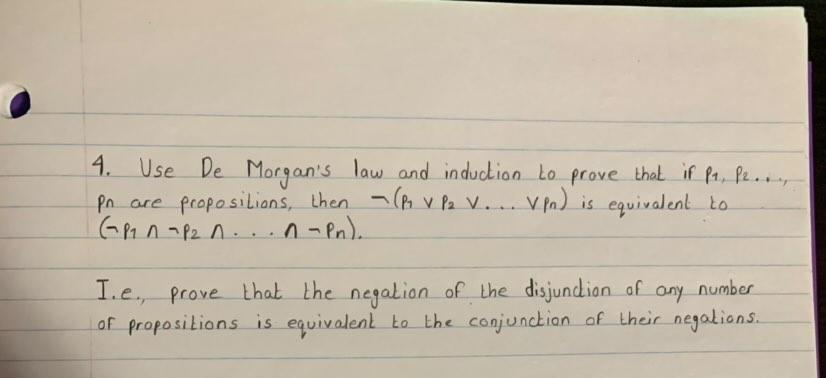 4. Use De Morgan's law and induction to prove that if p1, p2...,
pn are propositions, then ¬(p1 ∨ p2 ∨ ... ∨ pn) is equivalent to
(¬p1 ∩ ¬p2 ∩ ... ∩ ¬pn).
I.e., prove that the negation of the disjunction of any number
of propositions is equivalent to the conjunction of their negations.